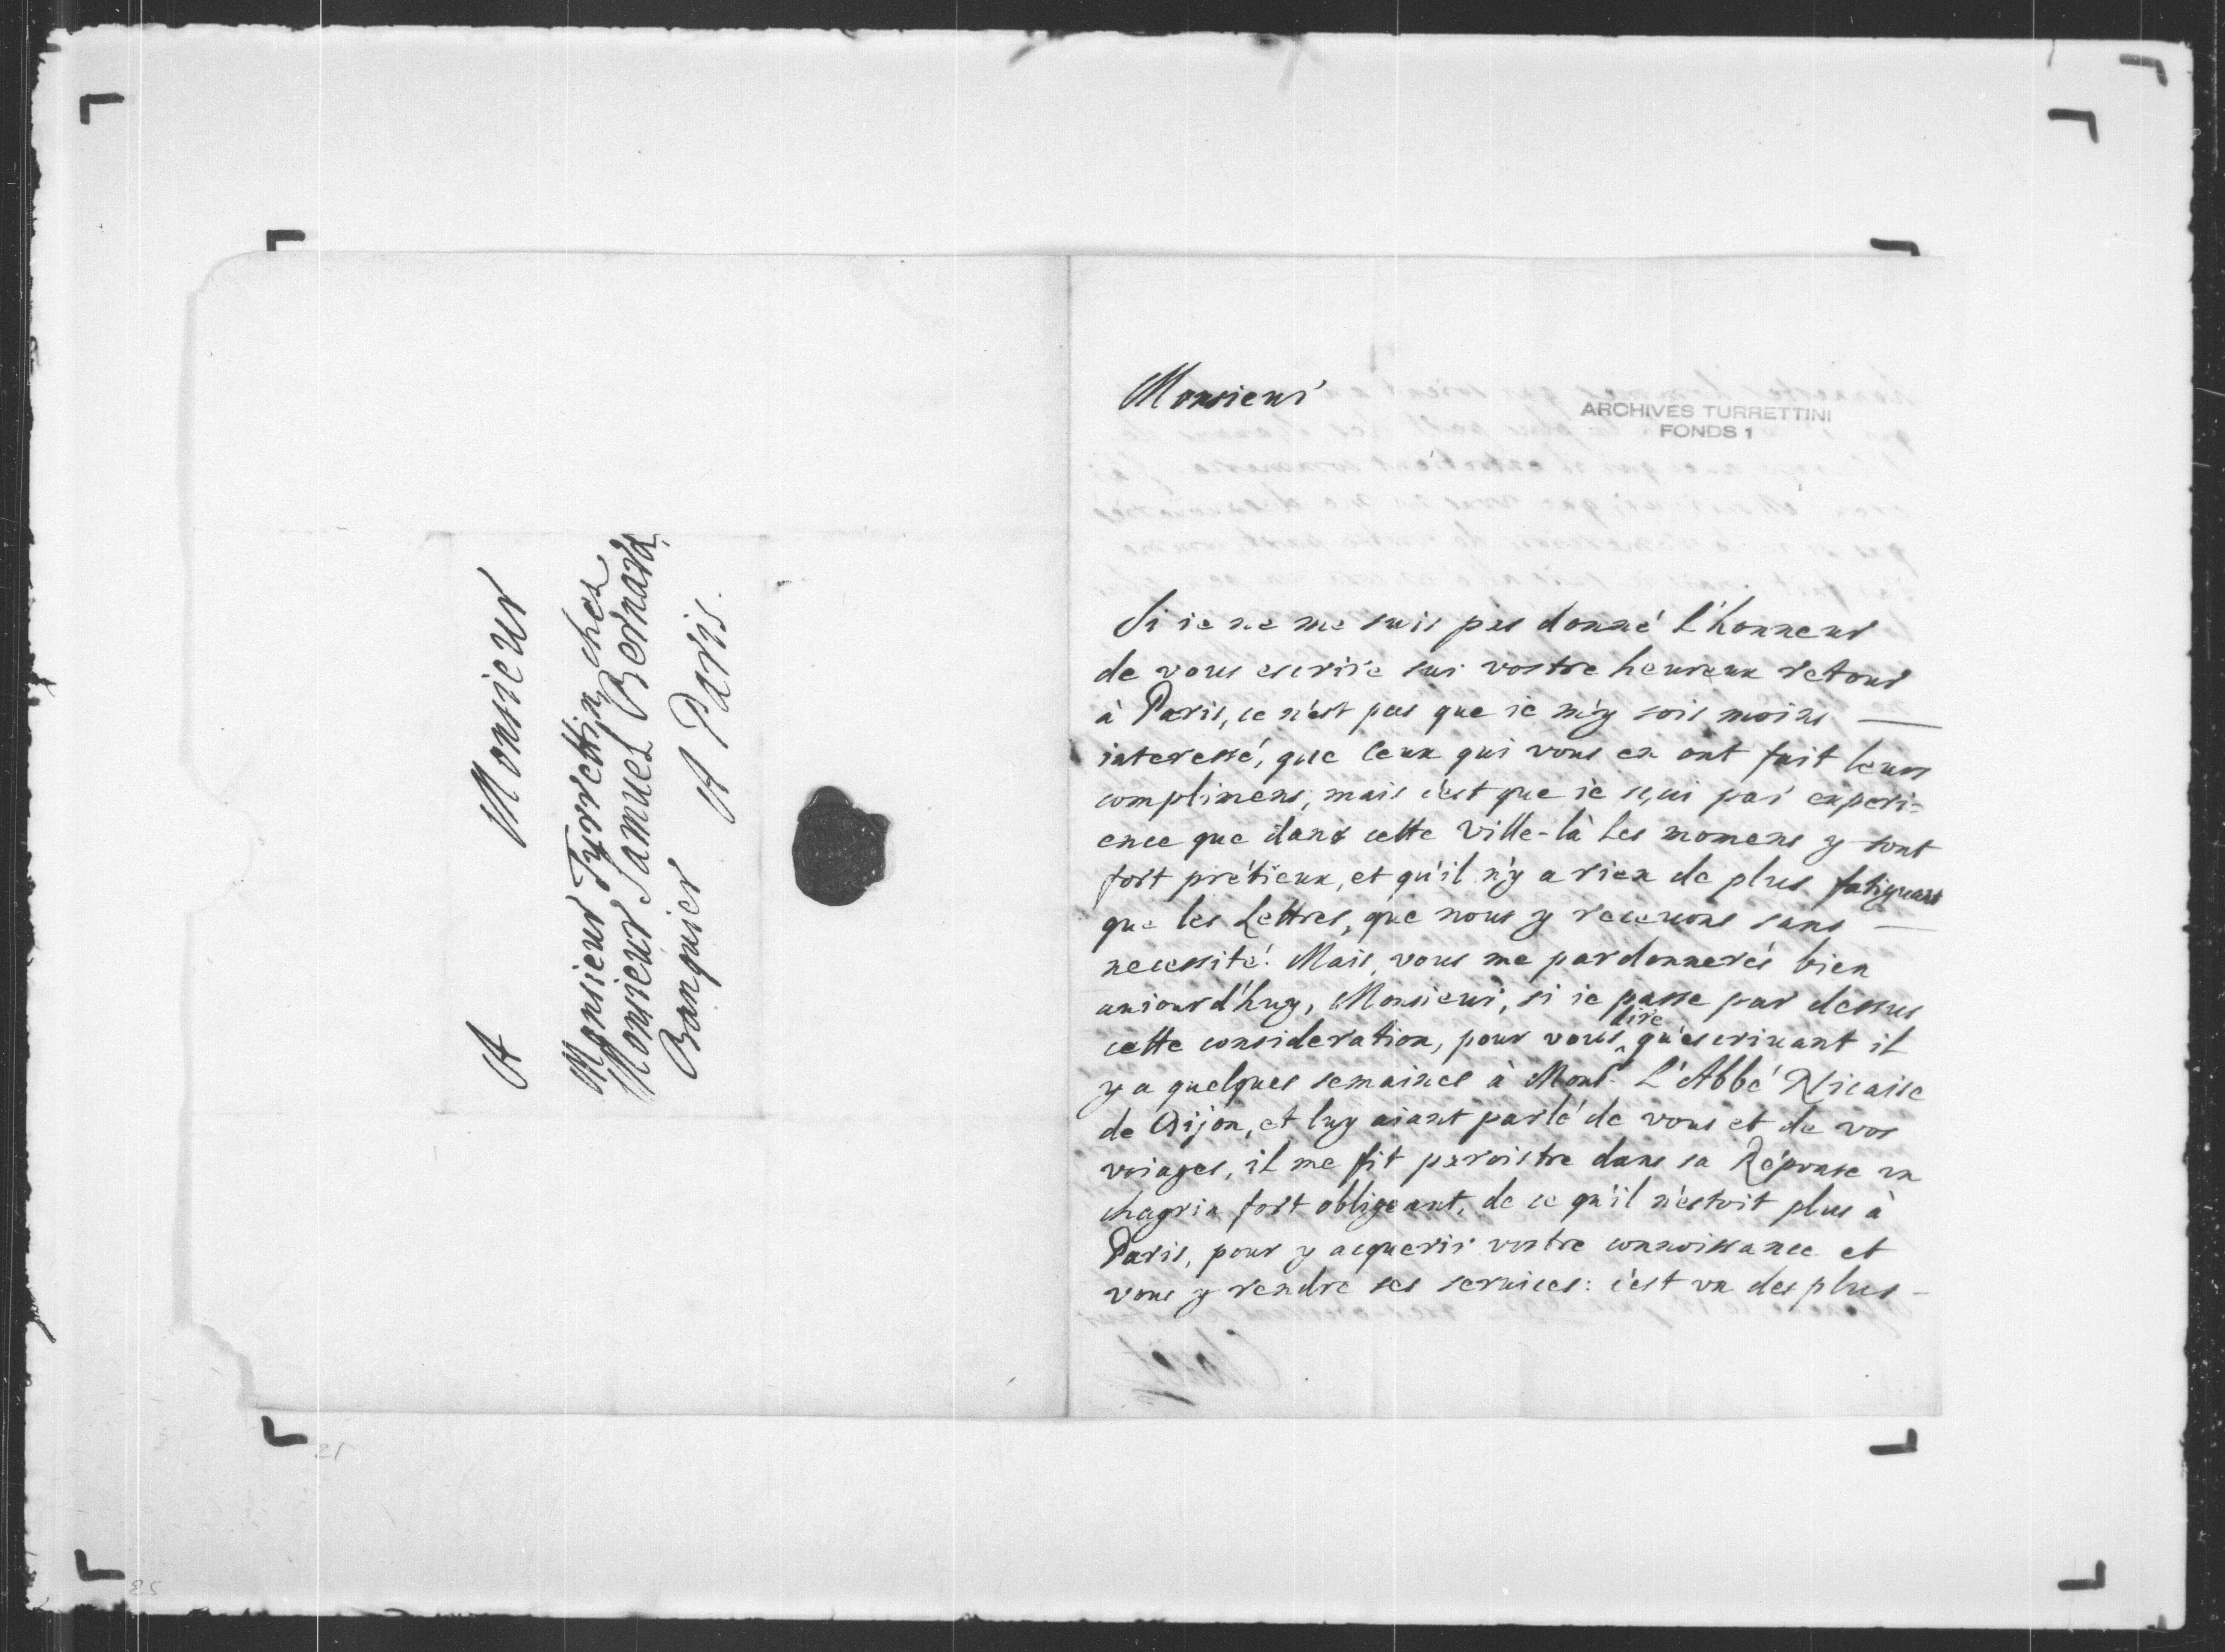 A Monsieur
Monsieur Tyrrettin ches
Monsieur Samuel Bernard
Banquier A Paris.
Monsieur
ARCHIVES TURRETTINI
FONDS 1
Si ie ne me suis pas donné l'honneur
de vous escrire sur vostre heureux retour
à Paris, ce n'est pas que ie m'y sois moins
interessé, que ceux qui vous en ont fait leurs
complimens; mais c'est que ie sçai par experi-
ence que dans cette Ville-là les momens y sont
fort prétieux, et qu'il n'y a rien de plus fatiguant
que les Lettres, que nous y receuons sans
necessité. Mais, vous me pardonnerés bien
auiourd'huy, Monsieur, si ie passe par dessus
cette consideration, pour vous dire qu'escriuant il
y a quelques semaines à Monsr. L'Abbé Nicaise
de Dijon, et luy aiant parlé de vous et de vos
voiages, il me fit paroistre dans sa Réponse vn
chagrin fort obligeant, de ce qu'il n'estoit plus à
Paris, pour y acquerir vostre connoissance et
vous y rendre ses seruices: c'est vn des plus
21
25